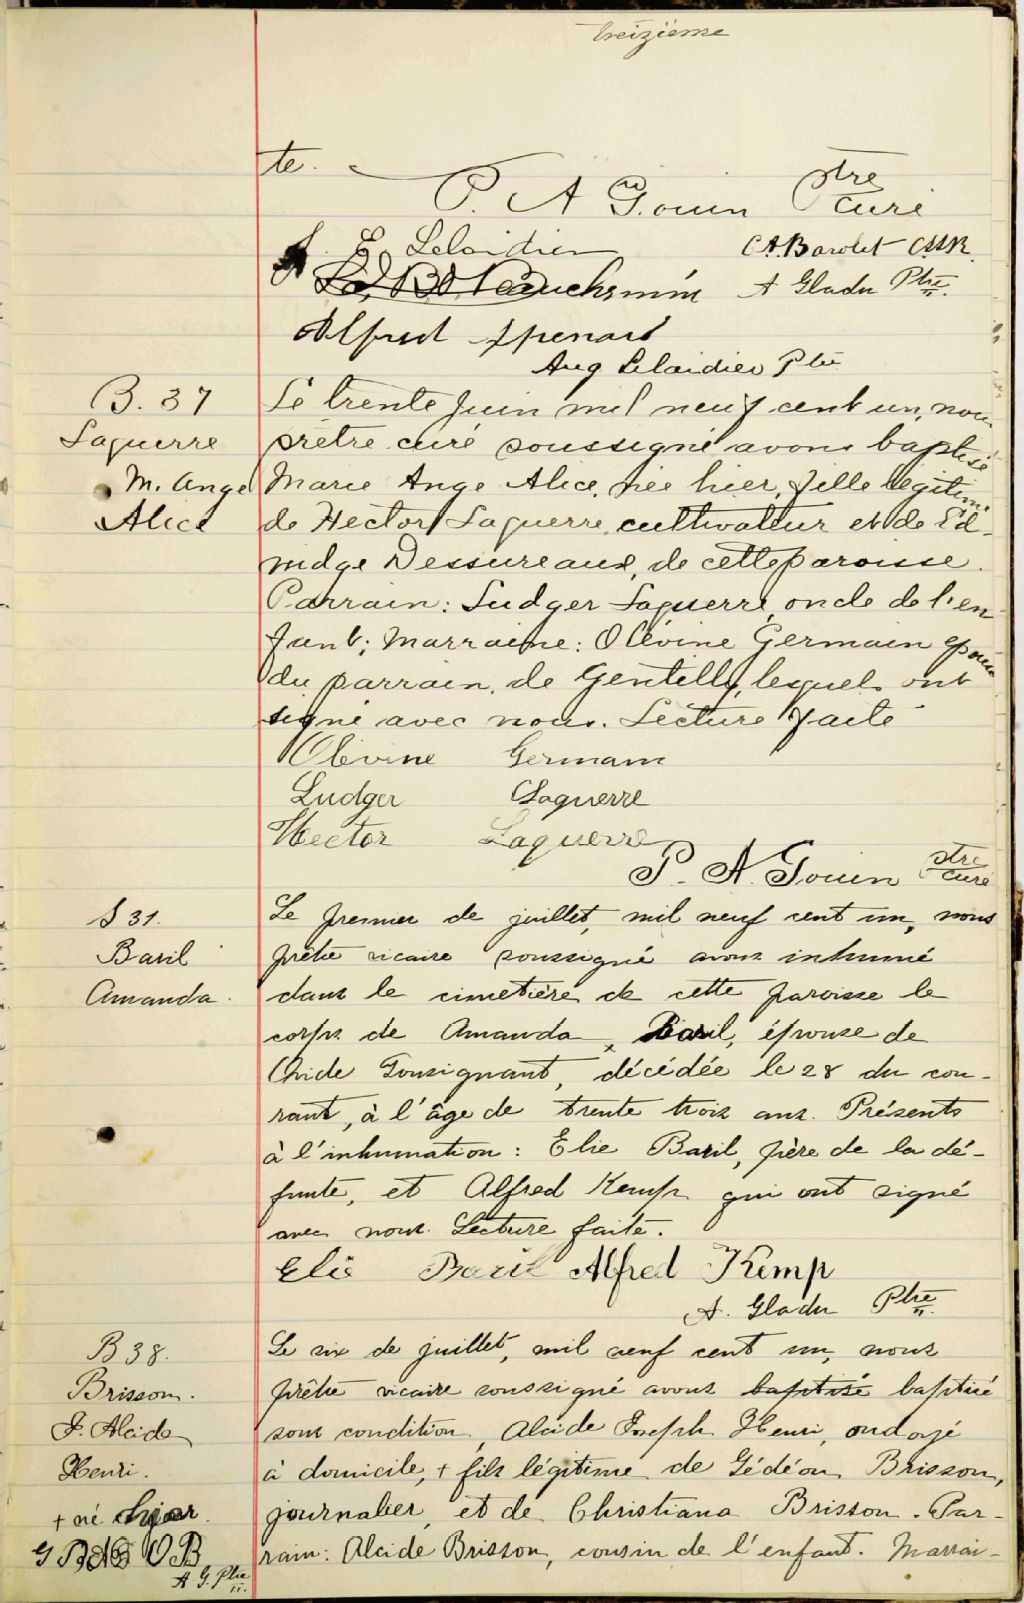 treizième
te.
P. A Gouin Ptre curé
L. E. Lelaidier C.A. Barolet CSSR.
Beauchemin A Gladu Ptre.
Alfred
Aug Lelaidier Ptre
B. 37
Laguerre
M. Ange
Alice
Le trente Juin mil neuf cent un, nous
prêtre curé soussigné avons baptisé
Marie Ange Alice, née hier, fille légitime
de Hector Laguerre, cultivateur et de Ed-
nidge Dessureaux, de cette paroisse.
Parrain: Ludger Laguerre, oncle de l'en-
fant; Marraine: Olévine Germain épouse
du parrain, de Gentilly, lesquels ont
signé avec nous. Lecture faite
Olévine Germain
Ludger Laguerre
Hector Laguerre
P. A. Gouin Ptre curé
S 31.
Baril
Amanda.
Le premier de juillet, mil neuf cent un, nous
prêtre vicaire soussigné avons inhumé
dans le cimetière de cette paroisse le
corps de Amanda, Baril, épouse de
Ovide Tousignant, décédée le 28 du cou-
rant, à l'âge de trente trois ans. Présents
à l'inhumation: Elie Baril, père de la dé-
funte, et Alfred Kemp qui ont signé
avec nous. Lecture faite.
Elie Baril Alfred Kemp
A. Gladu Ptre.
B 38.
Brisson.
J. Alcide
Henri.
+ né hier.
G B A B O B
A G. Ptre
Le six de juillet, mil neuf cent un, nous
prêtre vicaire soussigné avons baptisé baptisé
sous condition, Alcide Joseph Henri, ondoyé
à domicile, + fils légitime de Gédéon Brisson,
journalier, et de Christiana Brisson. Par-
rain: Alcide Brisson, cousin de l'enfant. Marrai-